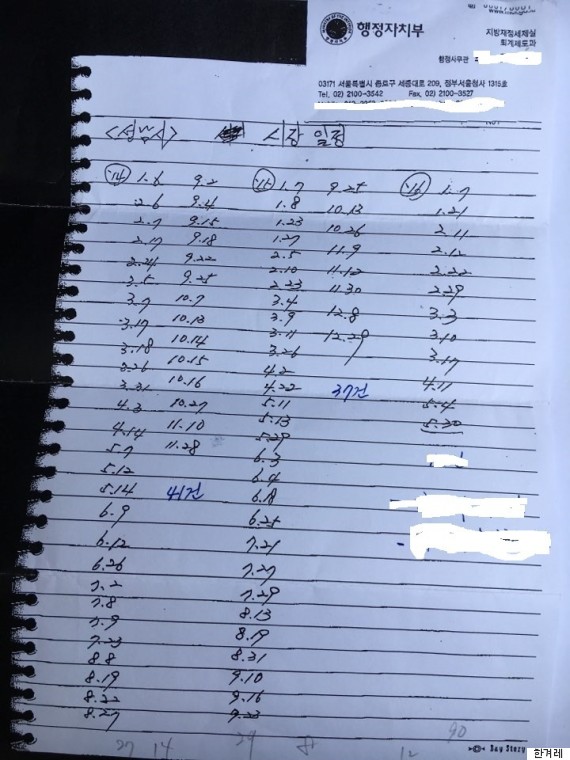 행정자치부
지방재정세제실
회계제도과
행정사무관
03171 서울특별시 종로구 세종대로 209, 정부서울청사 1315호
Tel. 02) 2100-3542 Fax. 02) 2100-3527
<성남시> 시장 일정
'14 1.6 9.2 '15 1.7 9.25 '16 1.7
2.6 9.4 1.8 10.13 1.21
2.7 9.15 1.23 10.26 2.11
2.17 9.18 1.27 11.9 2.12
2.24 9.22 2.5 11.12 2.22
3.5 9.25 2.10 11.30 2.29
3.7 10.7 2.23 12.8 3.3
3.17 10.13 3.4 12.29 3.10
3.18 10.14 3.9 3.17
3.26 10.15 3.11 4.11
3.31 10.16 3.26 5.4
4.3 10.27 4.2 5.30
4.14 11.10 4.22 37건
5.7 11.28 5.11
5.12 5.13
5.14 41건 5.29
6.9 6.3
6.12 6.4
6.26 6.18
7.2 6.25
7.8 7.21
7.9 7.27
7.23 7.29
8.8 8.13
8.19 8.19
8.22 8.31
8.27 9.10
9.16
9.23
27 14 29 8 12 90
Day Story
한겨레